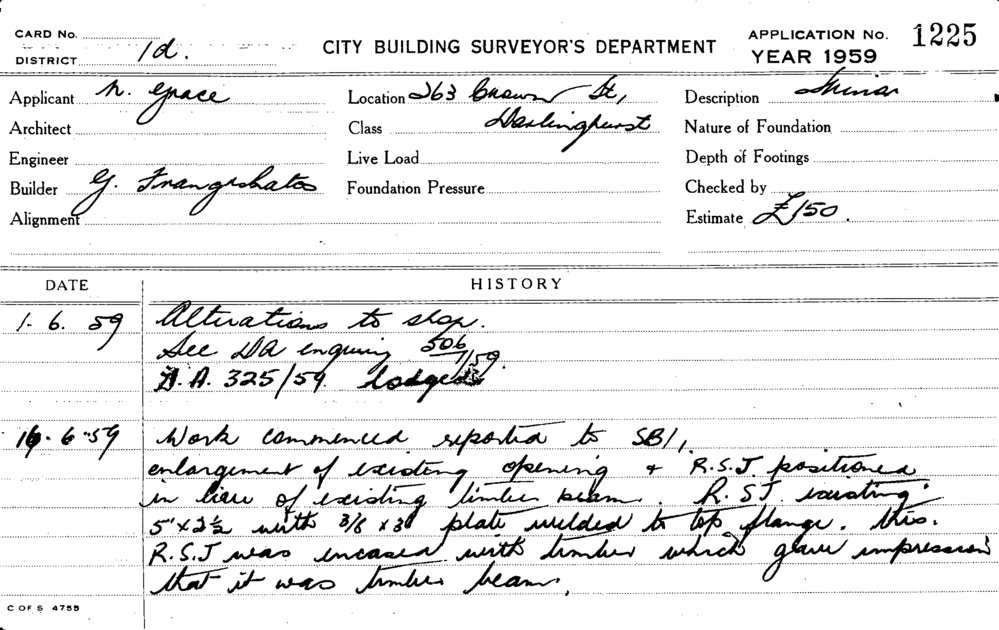 CARD No.
DISTRICT 1d.
CITY BUILDING SURVEYOR'S DEPARTMENT
APPLICATION No. 1225
YEAR 1959
Applicant N. Grace
Location 263 Crown St,
Description Minor
Architect
Class Darlinghurst
Nature of Foundation
Engineer
Live Load
Depth of Footings
Builder G. Frangeshatos
Foundation Pressure
Checked by
Alignment
Estimate £150.
DATE
HISTORY
1. 6. 59 Alterations to shop.
See DA enquiry 506/7/59.
D.A. 325/59. lodged
16. 6. 59 Work commenced reported to SB1,
enlargement of existing opening & R.S.J positioned
in lieu of existing timber beam. R.S.J. existing
5" x 2½ with 3/8 x 3" plate welded to top flange. this
R.S.J was incased with timber which gave impression
that it was timber beam.
C OF S 4755